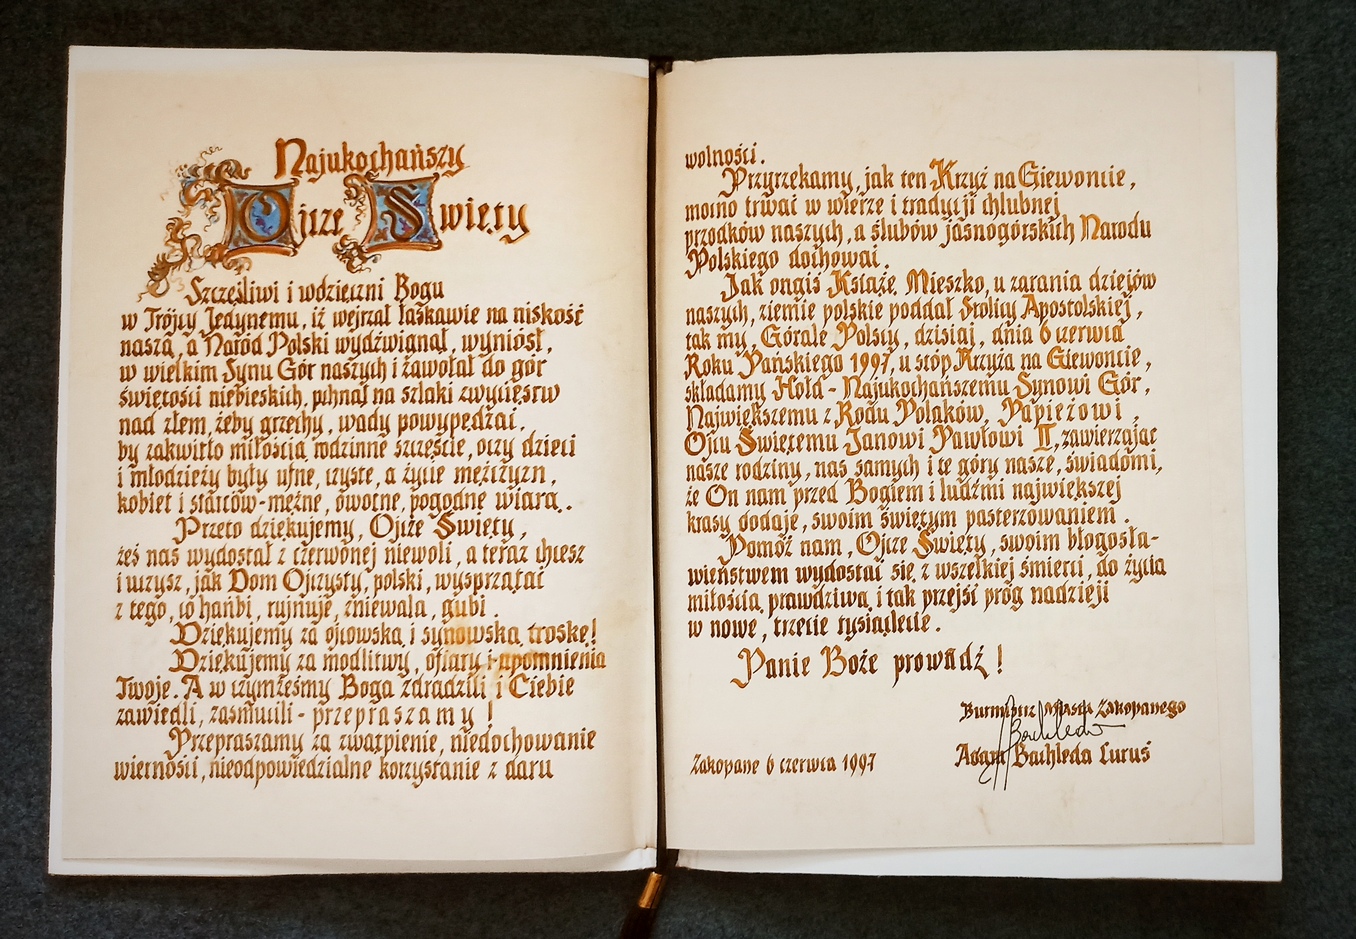 Najukochańszy
Ojcze Święty
Szczęśliwi i wdzięczni Bogu
w Trójcy Jedynemu, iż wejrzał łaskawie na niskość
naszą, a Naród Polski wydźwignął, wyniósł,
w wielkim Synu Gór naszych i zawołał do gór
świętości niebieskich, pchnął na szlaki zwycięstw
nad złem, żeby grzechy, wady powypędzać,
by zakwitło miłością rodzinne szczęście, oczy dzieci
i młodzieży były ufne, czyste, a życie mężczyzn,
kobiet i starców - mężne, owocne, pogodne wiarą.
Przeto dziękujemy, Ojcze Święty,
żeś nas wydostał z czerwonej niewoli, a teraz chcesz
i uczysz, jak Dom Ojczysty, polski, wysprzątać
z tego, co hańbi, rujnuje, zniewala, gubi.
Dziękujemy za ojcowską i synowską troskę!
Dziękujemy za modlitwy, ofiary i upomnienia
Twoje. A w czymżeśmy Boga zdradzili i Ciebie
zawiedli, zasmucili - przepraszamy!
Przepraszamy za zwątpienie, niedochowanie
wierności, nieodpowiedzialne korzystanie z daru
wolności.
Przyrzekamy, jak ten Krzyż na Giewoncie,
mocno trwać w wierze i tradycji chlubnej
przodków naszych, a ślubów jasnogórskich Narodu
Polskiego dochować.
Jak ongiś Książę Mieszko, u zarania dziejów
naszych, ziemie polskie poddał Stolicy Apostolskiej,
tak my, Górale Polscy, dzisiaj, dnia 6 czerwca
Roku Pańskiego 1997, u stóp Krzyża na Giewoncie,
składamy Hołd - Najukochańszemu Synowi Gór,
Największemu z Rodu Polaków, Papieżowi,
Ojcu Świętemu Janowi Pawłowi II, zawierzając
nasze rodziny, nas samych i te góry nasze, świadomi,
że On nam przed Bogiem i ludźmi największej
krasy dodaje, swoim świętym pasterzowaniem.
Pomóż nam, Ojcze Święty, swoim błogosła-
wieństwem wydostać się z wszelkiej śmierci, do życia
miłością prawdziwą i tak przejść próg nadziei
w nowe, trzecie tysiąclecie.
Panie Boże prowadź!
Burmistrz Miasta Zakopanego
Zakopane 6 czerwca 1997
Adam Bachleda Curuś